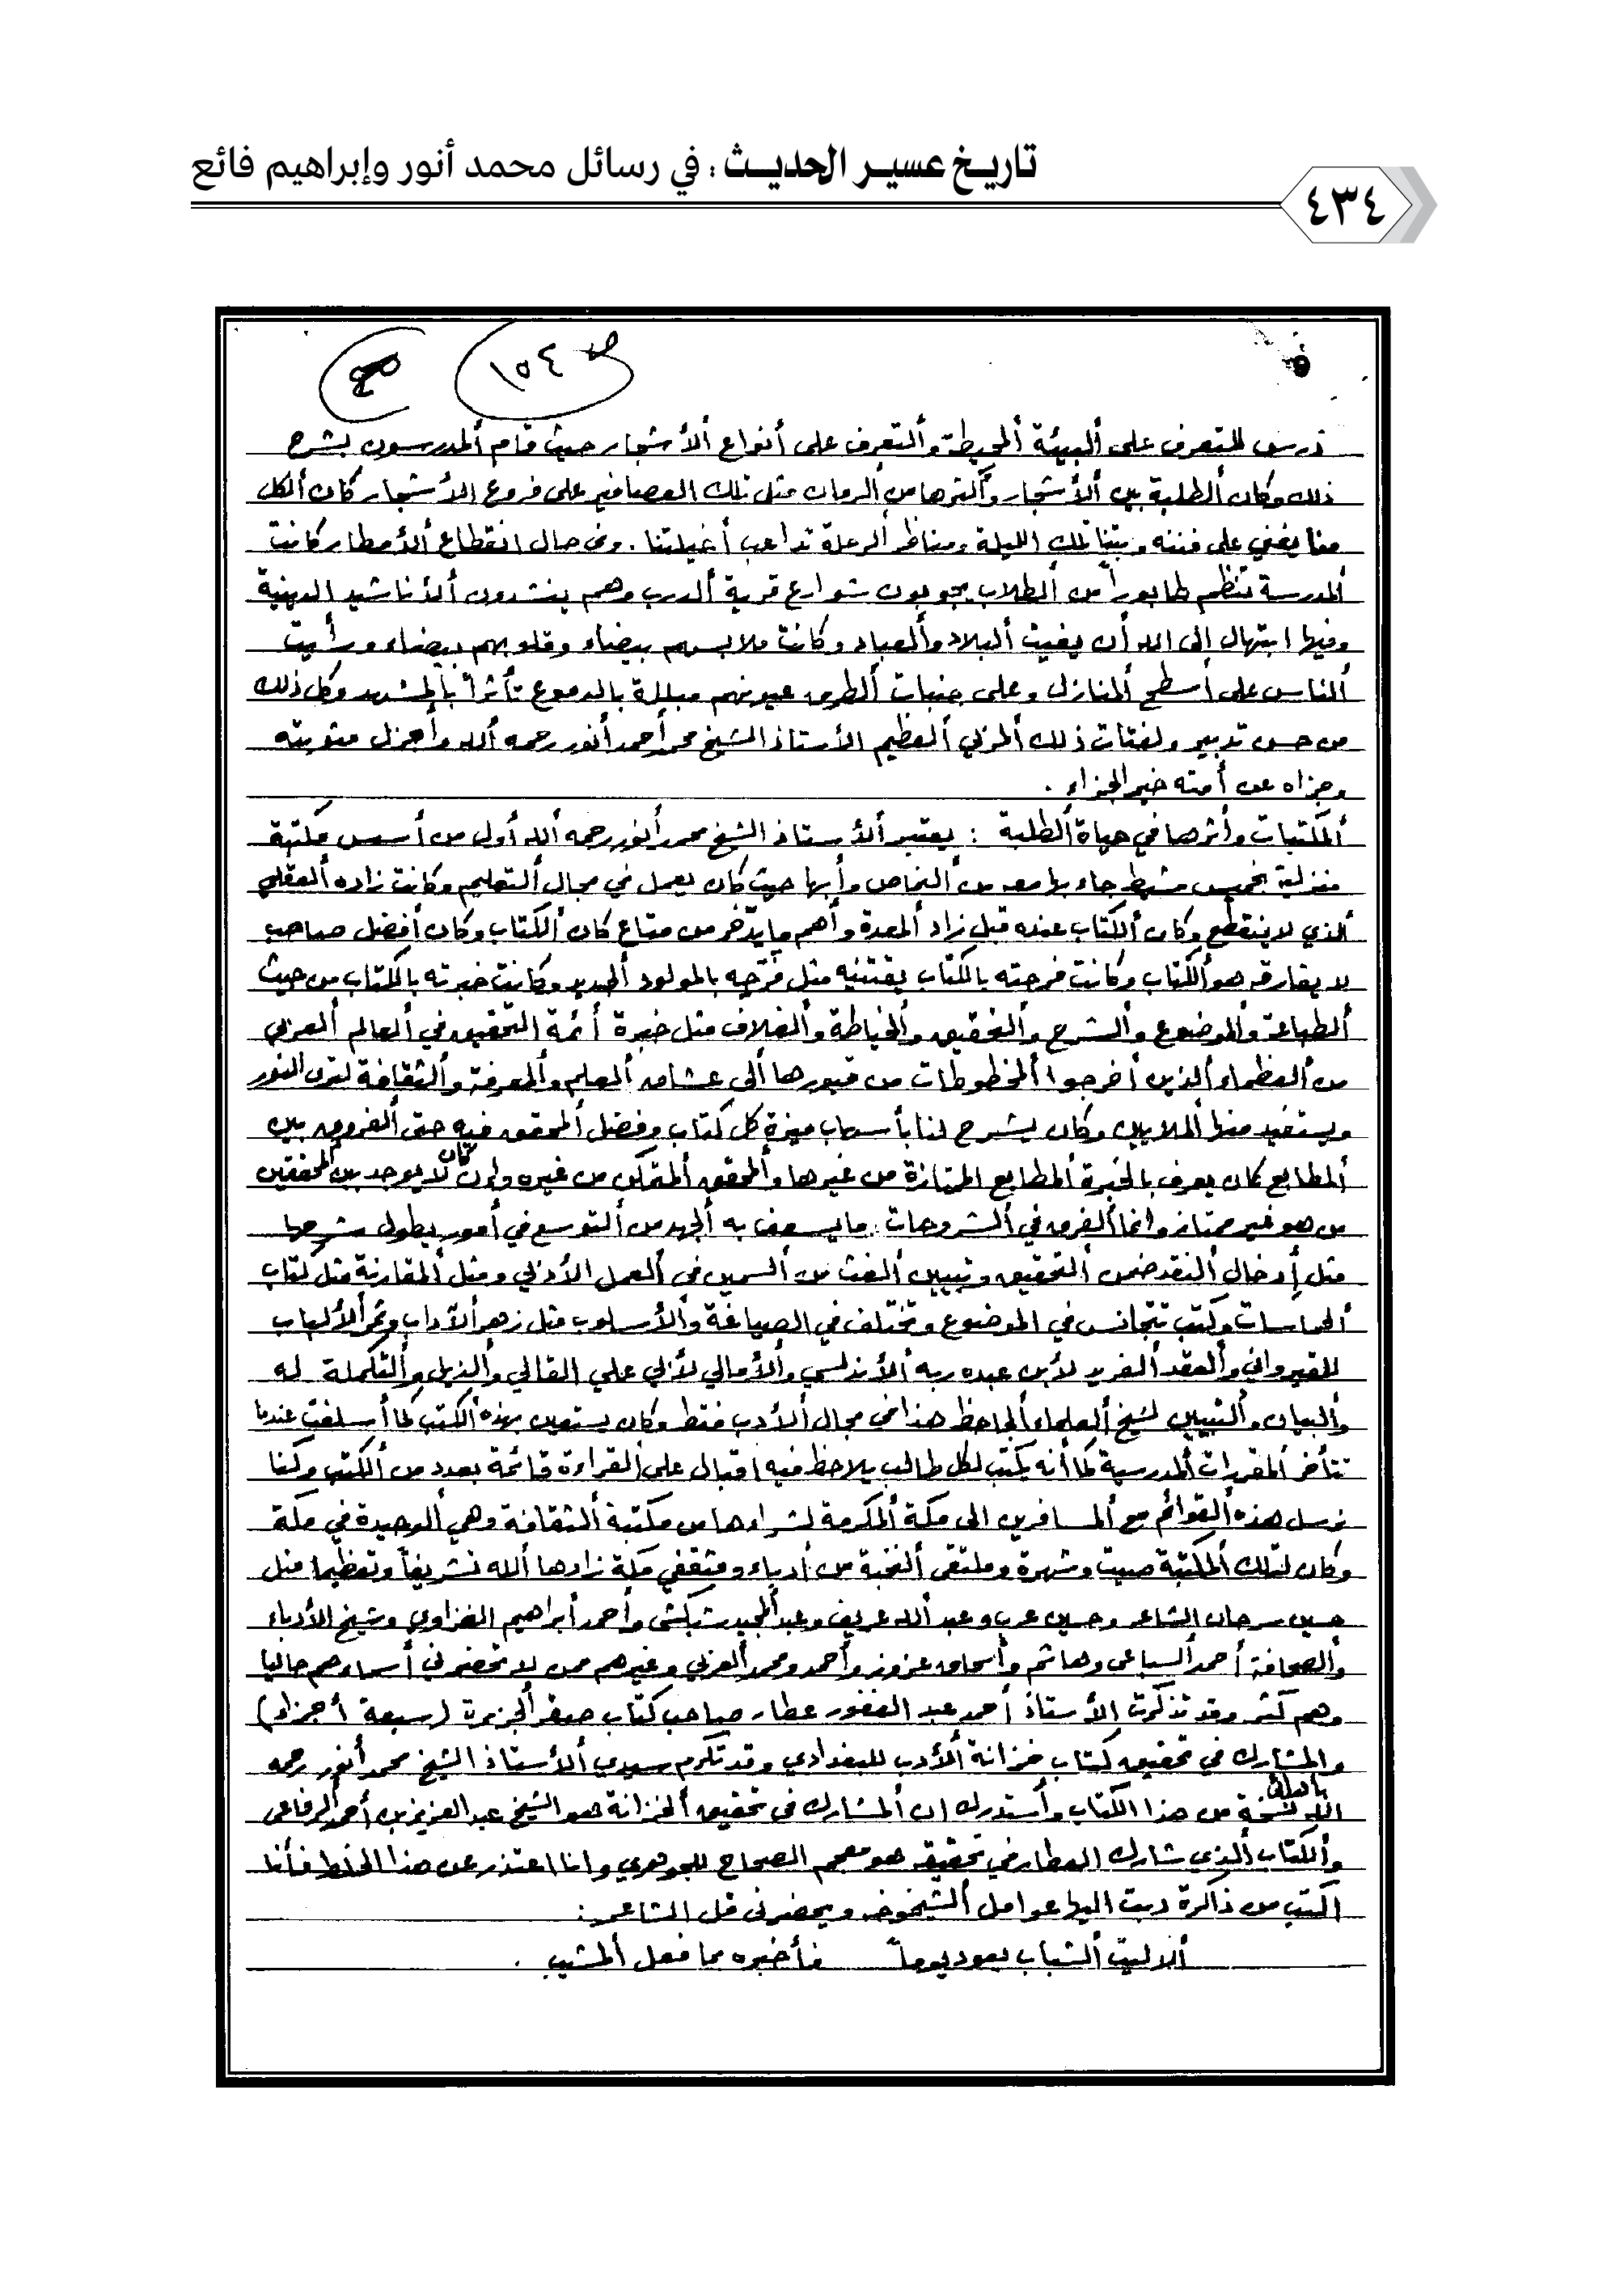 تاريخ عسير الحديث : في رسائل محمد أنور وإبراهيم فائع
٤٣٤
ص ١٥٤
درس للتعرف على ألبيئة ألمحيطة وألتعرف على أنواع ألأشجار حيث قام ألمدرسون بشرح
ذلك وكان ألطلبة بين ألأشجار وأكثرها من ألرمان مثل تلك العصافير على فروع الأشجار كان ألكل
منا يغني على فننه وبتنا تلك الليلة ومناظر ألرحلة تداعب أخيلتنا . وفي حال انقطاع ألأمطار كانت
ألمدرسة تنظم طابوراً من ألطلاب يجوبون شوارع قرية ألدرب وهم ينشدون ألأناشيد الدينية
وفيها ابتهال إلى الله أن يغيث ألبلاد وألعباد وكانت ملابسهم بيضاء وقلوبهم بيضاء ورأيت
ألناس على أسطح ألمنازل وعلى جنبات ألطريق عيونهم مبللة بالدموع تأثراً بألمشهد وكل ذلك
من حسن تدبير ولفتات ذلك ألمربي ألعظيم الأستاذ الشيخ محمد أحمد أنور رحمه ألله وأجزل مثوبته
وجزاه عن أمته خير الجزاء .
ألمكتبات وأثرها في حياة ألطلبة : يعتبر ألأستاذ الشيخ محمد أنور رحمه ألله أول من أسس مكتبة
منزلية بخميس مشيط جاء بها معه من ألنماص وأبها حيث كان يعمل في مجال ألتعليم وكانت زاده ألعقلي
ألذي لا ينقطع وكان ألكتاب عنده قبل زاد ألمعدة وأهم ما يدّخر من متاع كان ألكتاب وكان أفضل صاحب
لا يفارقه هو ألكتاب وكانت فرحته بالكتاب يقتنيه مثل فرحه بالمولود ألجديد وكانت خبرته بالكتاب من حيث
ألطباعة وألموضوع وألشرح وألتحقيق وألخياطة وألغلاف مثل خبرة أئمة التحقيق في ألعالم ألعربي
من ألعظماء ألذين أخرجوا ألمخطوطات من قبورها ألى عشاق ألعلم وألمعرفة وألثقافة لترى النور
ويستفيد منها ألملايين وكان يشرح لنا بأسهاب ميزة كل كتاب وفضل ألمحقق فيه حتى ألفروق بين
ألمطابع كان يعرف بالخبرة ألمطابع الممتازة من غيرها وألمحقق ألمتمكن من غيره وإن كان لا يوجد بين ألمحققين
من هو غير ممتاز وانما ألفرق في ألشروحات : ما يسعف به ألجهد من ألتوسع في أمور يطول شرحها
مثل إدخال ألنقد ضمن ألتحقيق وتبيين ألغث من ألسمين في ألعمل الأدبي ومثل ألمقارنة مثل كتاب
ألحماسات وكتب تتجانس في الموضوع وتختلف في الصياغة وألأسلوب مثل زهر ألآداب وثمر ألألباب
للقيرواني وألعقد ألفريد لأبن عبد ربه ألأندلسي وألأمالي لأبي علي القالي وألذيل وألتكملة له
وألبيان وألتبيين لشيخ ألعلماء ألجاحظ هذا في مجال ألأدب فقط وكان يستعين بهذه ألكتب كما أسلفت عندما
تتأخر ألمقررات ألمدرسية كما أنه يكتب لكل طالب يلاحظ فيه اقبال على ألقراءة قائمة بعدد من ألكتب وكنا
نرسل هذه ألقوائم مع ألمسافرين الى مكة ألمكرمة لشراءها من مكتبة ألثقافة وهي ألوحيدة في مكة
وكان لتلك ألمكتبة صيت وشهرة وملتقى ألنخبة من أدباء ومثقفي مكة زادها ألله تشريفاً وتعظيما مثل
حسين سرحان الشاعر وحسين عرب وعبد ألله عريف وعبد ألمجيد شبكشي وأحمد أبراهيم الغزاوي وشيخ الأدباء
وألصحافة أحمد ألسباعي وهاشم وأسحاق عزوز وأحمد ومحمد ألعربي وغيرهم ممن لا تحضرني أسماءهم حاليا
وهم كثر وقد تذكرت الأستاذ أحمد عبد الغفور عطار صاحب كتاب صقر ألجزيرة (سبعة أجزاء)
والمشارك في تحقيق كتاب خزانة ألأدب للبغدادي وقد تكرم سيدي ألأستاذ الشيخ محمد أنور رحمه
الله بأهدائي نسخة من هذا الكتاب وأستدرك ان ألمشارك في تحقيق ألخزانة هو الشيخ عبد العزيز بن أحمد ألرفاعي
وألكتاب ألذي شارك العطار في تحقيقه هو معجم الصحاح للجوهري وانا اعتذر عن هذا الخلط فأنا
اكتب من ذاكرة دبت اليها عوامل ألشيخوخه ويحضرني قول الشاعر :
ألا ليت ألشباب يعود يوماً فأخبره بما فعل ألمشيب .